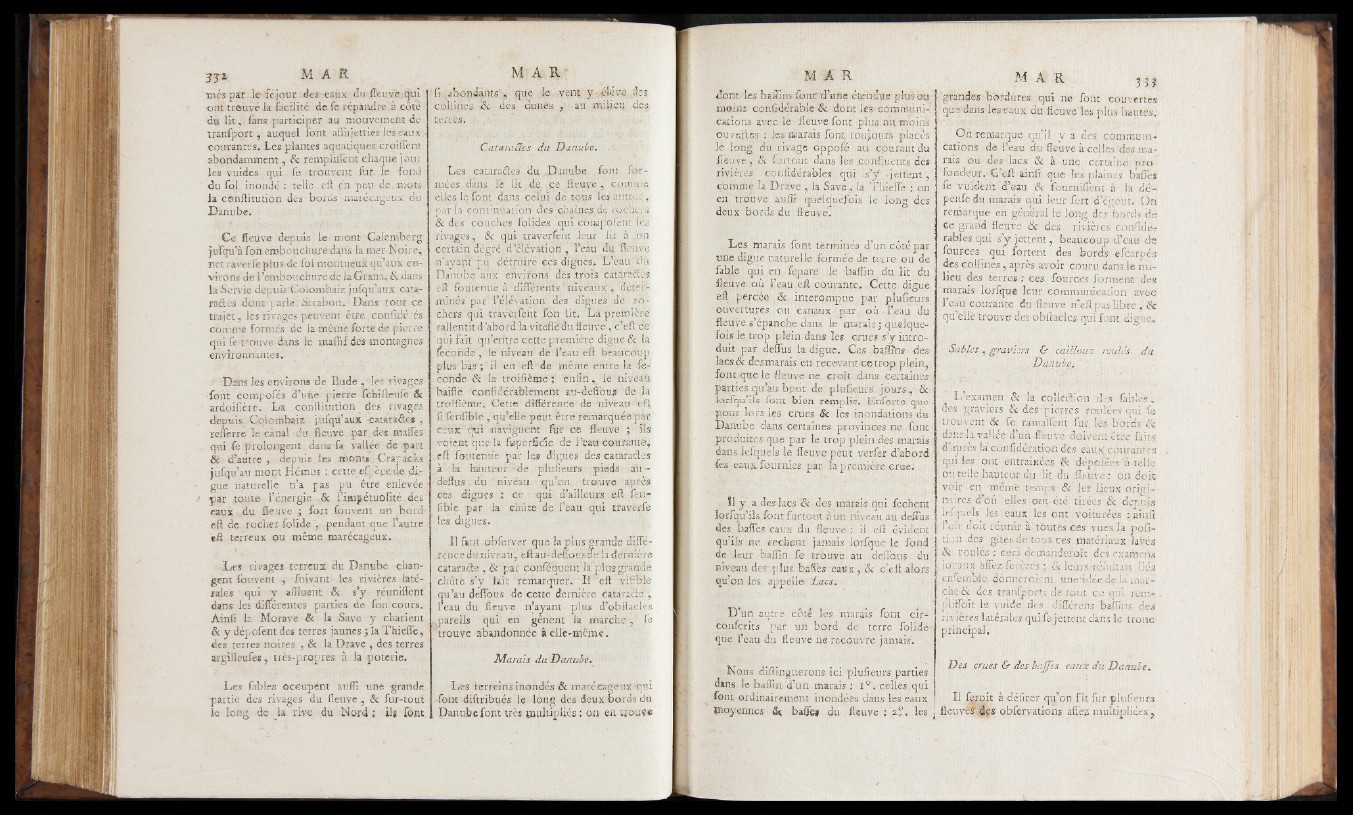 332 M A R
més par le séjour des eaux du fleuve qui
ont trouvé la facilité de se répandre à côté
du lit, sans participer au mouvement de
transport, auquel sont assujetties les eaux
courantes. Les plantes aquatiques croissent
abondamment, & remplissent chaque jour
les vuides qui se trouvent sur le fond
du sol inondé : telle est en peu de mots
la constitution des bords marécageux du
Danube.
Ce fleuve depuis le mont Calemberg
jusqu'à son embouchure dans la mer Noire,
ne traverse plus de sol montueux qu'aux en-
virons de l'embouchure de la Grana, & dans
la Servie depuis Colombaiz jusqu'aux cata-
ractes dont parle Strabon. Dans tout ce
trajet, les rivages peuvent être considérés
comme formés de la même sorte de pierre
qui se trouve dans le massif des montagnes
environnantes.
Dans les environs de Bude, les rivages
sont composés d'une pierre schisteuse &
ardoisière. La constitution des rivages
depuis Colombaiz jusqu'aux cataractes,
resserre le canal du fleuve par des masses
qui se prolongent dans sa vallée de part
& d'autre, depuis les monts Crapacks
jusqu'au mont Hémus : cette espèce de di-
gue naturelle n'a pas pu être enlevée
par toute l'énergie & l'impétuosité des
eaux du fleuve ; sort souvent un bord
est de rocher solide, pendant que l'autre
est terreux ou même marécageux.
Les rivages terreux du Danube chan-
gent souvent, suivant les rivières laté-
rales qui y affluent & s'y réunissent
dans les différentes parties de son cours.
Ainsi la Morave & la Save y charient
& y déposent des terres jaunes ; la Thiesse,
des terres noires, & la Drave, des terres
argilleuses, très-propres à la poterie.
Les sables occupent aussi une grande
partie des rivages du fleuve, & sur-tout
le long de la rive du Nord ; ils sont
M A R
si abondants, que le vent y élève des
collines & des dunes, au milieu des
terres.
Cataractes du Danube.
Les cataractes du Danube sont for-
mées dans le lit de ce fleuve, comme
elles le sont dans celui de tous les autres,
par la continuation des chaînes de rochers
& des couches solides qui composent les
rivages, & qui traversent leur lit à un
certain dégré d'élévation, l'eau du fleuve
n'ayant pu détruire ces digues. L'eau du
Danube aux environs des trois cataractes
est soutenue à différents niveaux, déter-
minés par l'élévation des digues de ro-
chers qui traversent son lit. La première
rallentit d'abord la vitesse du fleuve, c'est ce
qui fait qu'entre cette première digue & la
seconde, le niveau de l'eau est beaucoup
plus bas ; il en est de même entre la se-
conde & la troisième ; enfin, le niveau
baisse considérablement au-dessous de la
troisième. Cette différence de niveau est
si sensible, qu'elle peut être remarquée par
ceux qui naviguent sur ce fleuve ; ils
voient que la superficie de l'eau courante,
est soutenue par les digues des cataractes
à la hauteur de plusieurs pieds au-
dessus du niveau qu'on trouve après
ces digues : ce qui d'ailleurs est sen-
sible par la chûte de l'eau qui traverse
les digues.
Il faut observer que la plus grande diffé-
rence du niveau, est au-dessous de la dernière
cataracte, & par conséquent la plus grande
chûte s'y fait remarquer. Il est visible
qu'au dessous de cette dernière cataracte,
l'eau du fleuve n'ayant plus d'obstacles
pareils qui en gênent la marche, se
trouve abandonnée à elle-même.
Marais du Danube.
Les terreins inondés & marécageux qui
sont distribués le long des deux bords du
Danube sont très multipliés : on en trouve
M A R
dont les bassins sont d'une étendue plus ou
moins considérable & dont les communi-
cations avec le fleuve sont plus ou moins
ouvertes : les marais sont toujours placés
le long du rivage opposé au courant du
fleuve, & surtout dans les confluents des
rivières considérables qui s'y jettent,
comme la Drave, la Save, la Thiesse : on
en trouve aussi quelquefois le long des
deux bords du fleuve.
Les marais sont terminés d'un côté par
une digue naturelle formée de terre ou de
sable qui en sépare le bassin du lit du
fleuve où l'eau est courante. Cette digue
est percée & interrompue par plusieurs
ouvertures ou canaux par où l'eau du
fleuve s'épanche dans le marais ; quelque-
fois le trop plein dans les crues s'y intro-
duit par dessus la digue. Ces bassins des
lacs & des marais en recevant ce trop plein,
font que le fleuve ne croît dans certaines
parties qu'au bout de plusieurs jours, &
lorsqu'ils sont bien remplis. Ensorte que
pour lors les crues & les inondations du
Danube dans certaines provinces ne sont
produites que par le trop plein des marais
dans lesquels le fleuve peut verser d'abord
ses eaux fournies par la première crue.
Il y a des lacs & des marais qui sechent
lorsqu'ils sont surtout à un niveau au dessus
des basses eaux du fleuve : il est évident
qu'ils ne sechent jamais lorsque le fond
de leur bassin se trouve au dessous du
niveau des plus basses eaux, & c'est alors
qu'on les appelle Lacs.
D'un autre côté les marais sont cir-
conscrits par un bord de terre solide
que l'eau du fleuve ne recouvre jamais.
Nous distinguerons ici plusieurs parties
dans le bassin d'un marais : 1°. celles qui
sont ordinairement inondées dans les eaux
moyennes & basses du fleuve : 2°. les
M A R 333
grandes bordures qui ne sont couvertes
que dans les eaux du fleuve les plus hautes.
On remarque qu'il y a des communi-
cations de l'eau du fleuve à celles des ma-
rais ou des lacs & à une certaine pro-
fondeur. C'est ainsi que les plaines basses
se vuident d'eau & fournissent à la dé-
pense du marais qui leur sert d'égout. On
remarque en général le long des bords de
ce grand fleuve & des rivières considé-
rables qui s'y jettent, beaucoup d'eau de
sources qui sortent des bords escarpés
des collines, après avoir couru dans le mi-
lieu des terres : ces sources forment des
marais lorsque leur communication avec
l'eau courante du fleuve n'est pas libre, &
qu'elle trouve des obstacles qui font digue.
Sables, graviers & cailloux roulés du
Danube.
L'examen & la collection des sables,
des graviers & des pierres roulées qui se
trouvent & se ramassent sur les bords &
dans la vallée d'un fleuve doivent être faits
d'après la considération des eaux courantes
qui les ont entraînées & déposées à telle
ou telle hauteur du lit du fleuve : on doit
voir en même temps & les lieux origi-
naires d'où elles ont été tirées & depuis
lesquels les eaux les ont voiturées : ainsi
l'on doit réunir à toutes ces vues la posi-
tion des gites de tous ces matériaux lavés
& roulés : ceci demanderoit des examens
locaux assez sevères ; & leurs résultats liés
ensemble donneroient une idée de la mar-
che & des transports de tout ce qui rem-
plissoit le vuide des différens bassins des
rivières latérales qui se jettent dans le tronc
principal.
Des crues & des basses eaux du Danube.
Il seroit à désirer qu'on fît sur plusieurs
fleuves des observations assez multipliées,